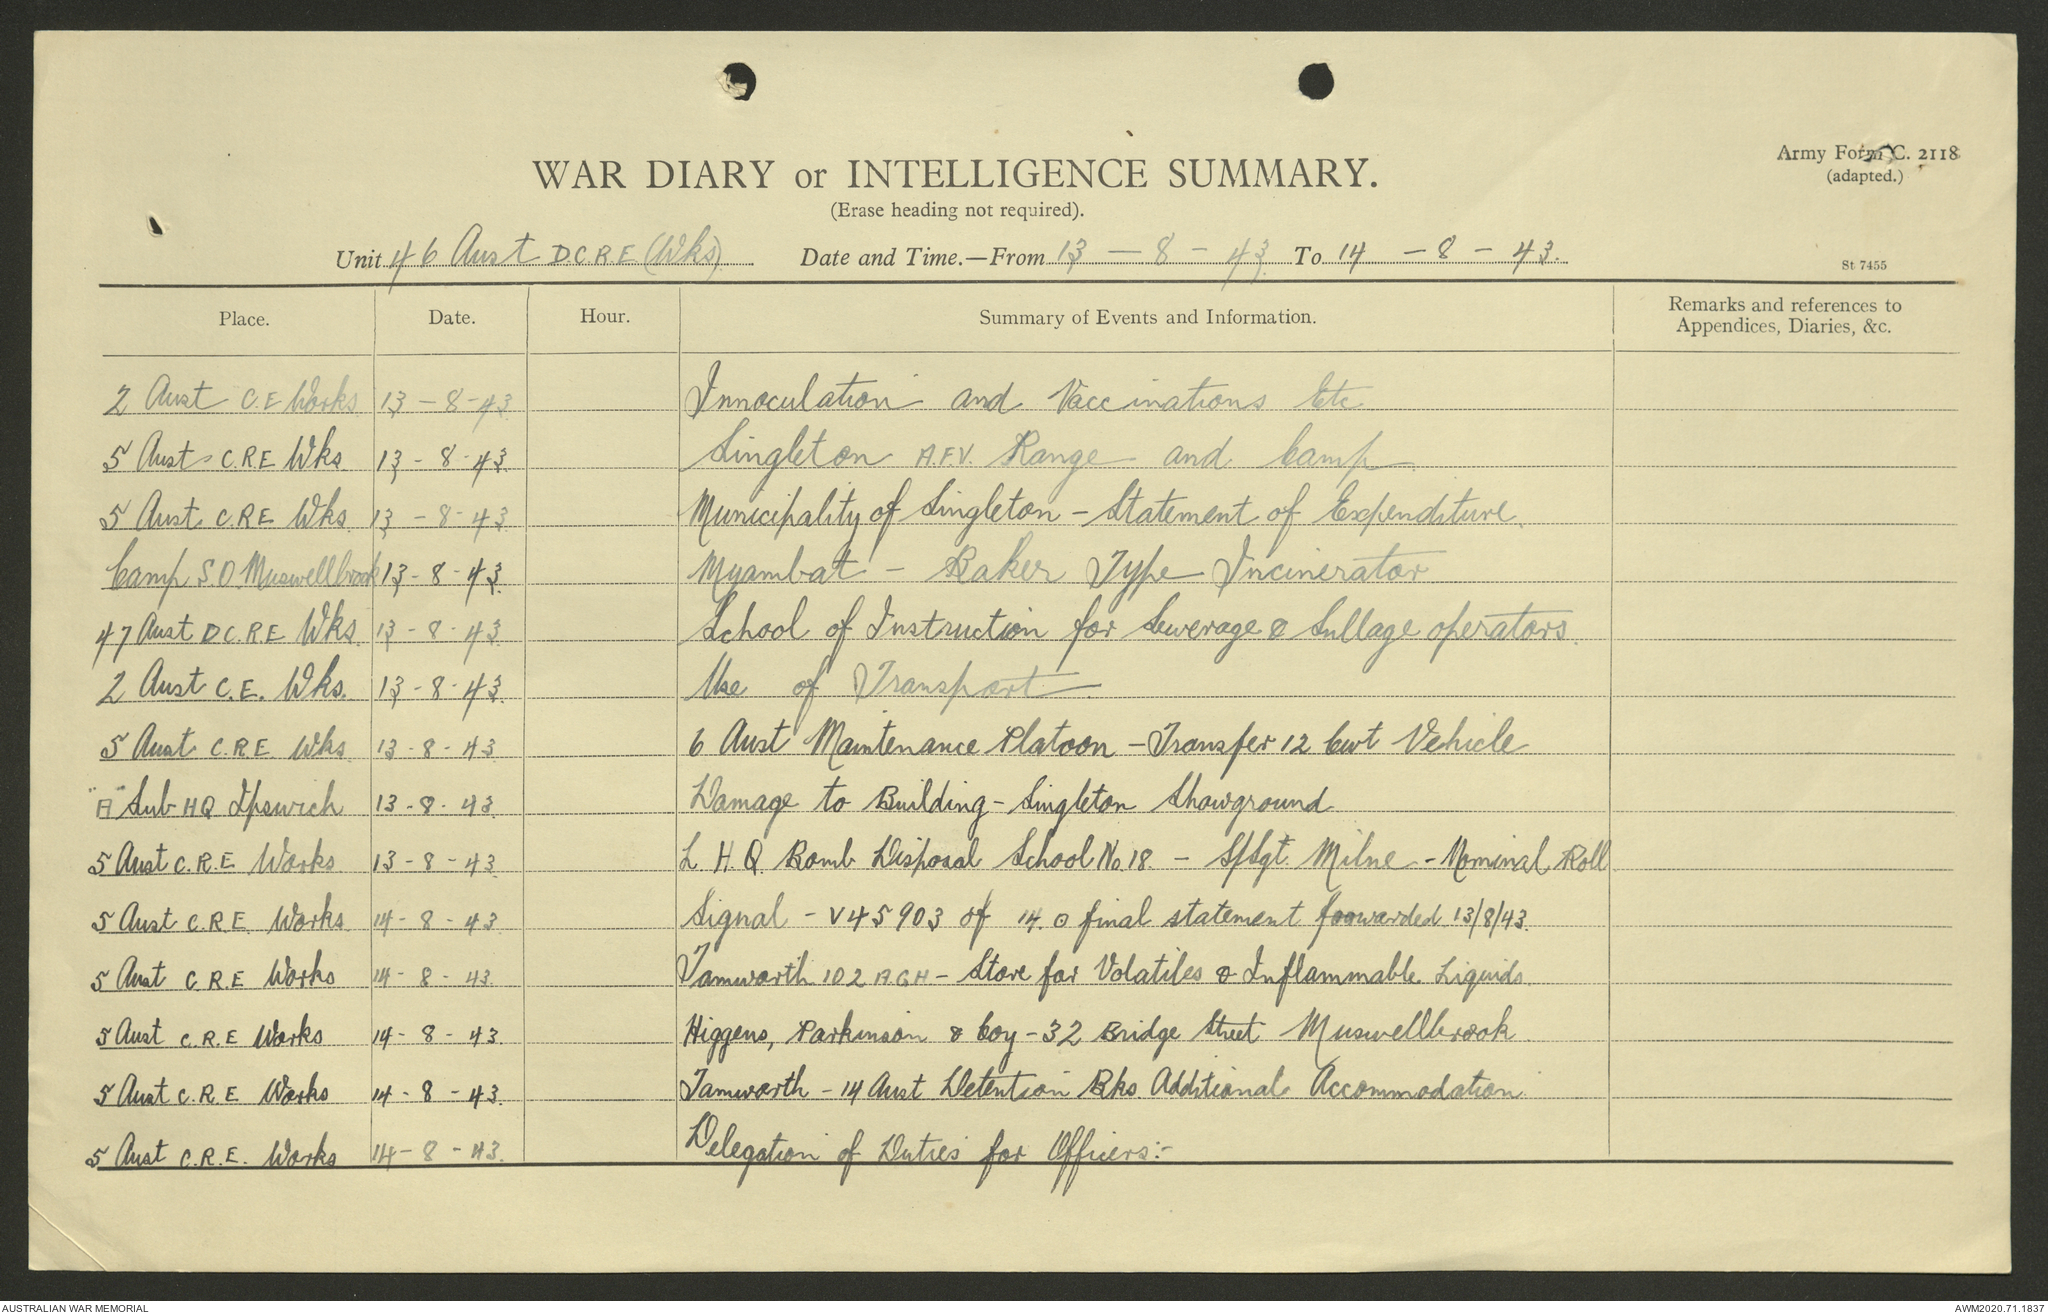 WAR DIARY or INTELLIGENCE SUMMARY.
(Erase heading not required).
Army Form C. 2118
(adapted.)
Unit 46 Aust D.C.R.E (Wks) Date and Time.—From 13 - 8 - 43. To 14 - 8 - 43.
St 7455
Place. Date. Hour. Summary of Events and Information. Remarks and references to
Appendices, Diaries, &c.
2 Aust C.E Works 13 - 8 - 43 Innoculation and Vaccinations Etc
5 Aust C.R.E Wks 13 - 8 - 43. Singleton A.F.V. Range and Camp
5 Aust C.R.E Wks. 13 - 8 - 43. Municipality of Singleton - Statement of Expenditure.
Camp S.O. Muswellbrook 13 - 8 - 43. Myambat - Baker Type Incinerator
47 Aust D.C.R.E Wks. 13 - 8 - 43. School of Instruction for Sewerage & Sullage operators.
2 Aust C.E. Wks. 13 - 8 - 43. Use of Transport.
5 Aust C.R.E. Wks. 13 - 8 - 43. 6 Aust Maintenance Platoon - Transfer 12 Cwt Vehicle
"A" Sub HQ Ipswich 13 - 8 - 43. Damage to Building - Singleton Showground
5 Aust C.R.E Works. 13 - 8 - 43. L.H.Q. Bomb Disposal School No. 18. - S/Sgt. Milne - Nominal Roll
5 Aust C.R.E. Works 14 - 8 - 43. Signal - V45903 of 14. O final statement forwarded 13/8/43.
5 Aust C.R.E Works 14 - 8 - 43. Tamworth 102 A.G.H - Store for Volatiles & Inflammable Liquids.
5 Aust C.R.E Works 14 - 8 - 43 Higgens, Parkinson & Coy - 32 Bridge Street Muswellbrook.
5 Aust C.R.E. Works 14 - 8 - 43. Tamworth - 14 Aust Detention Bks. Additional Accommodation.
5 Aust C.R.E. Works 14 - 8 - 43. Delegation of Duties for Officers:-
AUSTRALIAN WAR MEMORIAL
AWM2020.71.1837